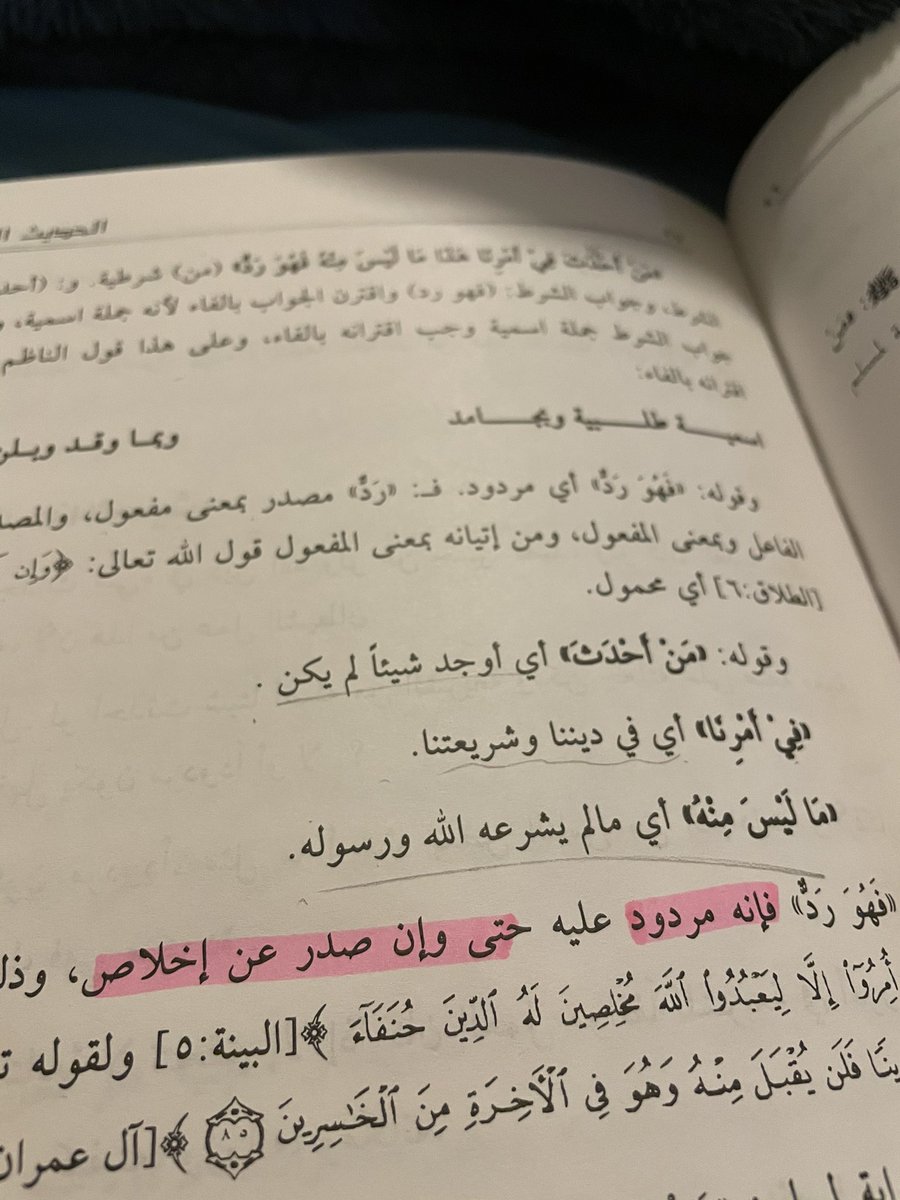 الحديث
«مَنْ أَحْدَثَ فِيْ أَمْرِنَا هَذَا مَا لَيْسَ مِنْهُ فَهُوَ رَدٌّ» (من) شرطية. و: (أحد
الشرط، وجواب الشرط: (فهو رد) واقترن الجواب بالفاء لأنه جملة اسمية،
جواب الشرط جملة اسمية وجب اقترانه بالفاء، وعلى هذا قول الناظم
اقترانه بالفاء:
اسميـة طلبية وبجامد وبما وقد وبلن
وقوله: «فَهُوَ رَدٌّ» أي مردود. فـ: «رَدٌّ» مصدر بمعنى مفعول، والمصد
الفاعل وبمعنى المفعول، ومن إتيانه بمعنى المفعول قول الله تعالى: ﴿وَإِن
[الطلاق:٦] أي محمول.
وقوله: «مَنْ أَحْدَثَ» أي أوجد شيئاً لم يكن .
«فِيْ أَمْرِنَا» أي في ديننا وشريعتنا.
«مَا لَيْسَ مِنْهُ» أي مالم يشرعه الله ورسوله.
«فَهُوَ رَدٌّ» فإنه مردود عليه حتى وإن صدر عن إخلاص، وذل
أُمِرُوٓا۟ إِلَّا لِيَعْبُدُوا۟ ٱللَّهَ مُخْلِصِينَ لَهُ ٱلدِّينَ حُنَفَآءَ ﴾[البينة:٥] ولقوله ت
ينًا فَلَن يُقْبَلَ مِنْهُ وَهُوَ فِى ٱلْـَٔاخِرَةِ مِنَ ٱلْخَـٰسِرِينَ ٨٥ ﴾[آل عمران
ﷺ: فصل
لمسلم